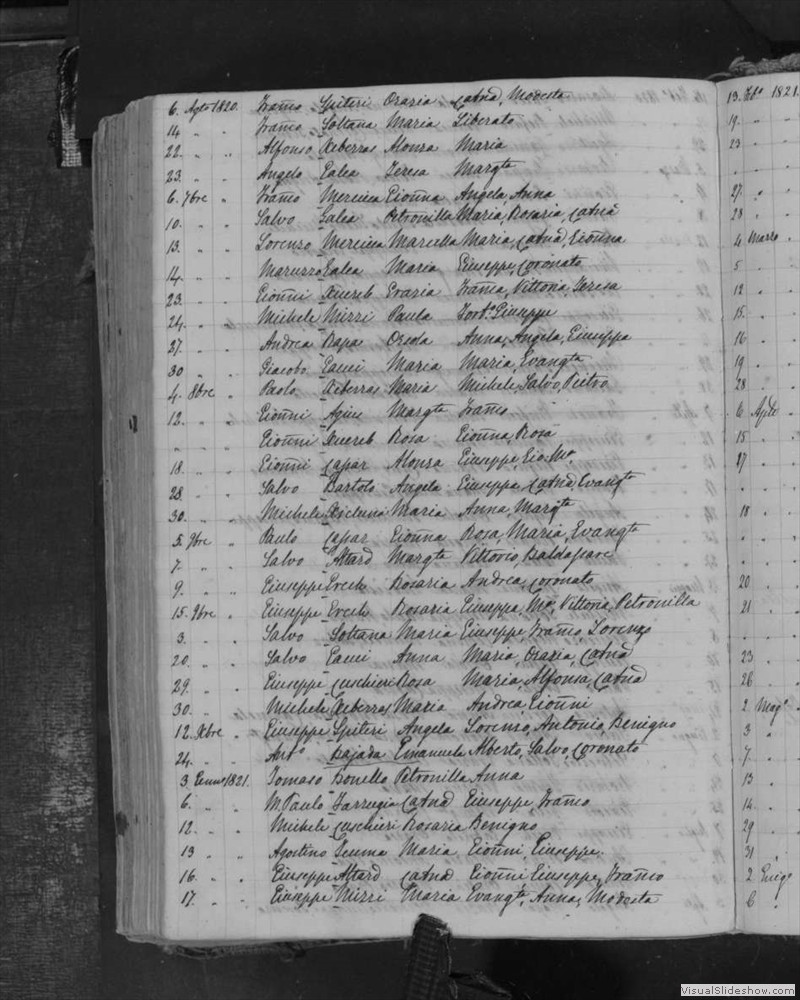 6. Agto 1820. Franco Spiteri Grazia Catna, Modesta
14 " " Franco Soltana Maria Liberato
22. " " Alfonso Xeberras Alonza Maria
23. " " Angelo Galea Teresa Margta
6. 7bre " Franco Mercieca Gionna Angela, Anna
10. " " Salvo Galea Petronilla Maria, Rosaria, Catna
13. " " Lorenzo Mercieca Marcella Maria, Catna, Gionna
14. " " Maruzzo Galea Maria Giuseppe, Coronato
23. " " Gionni Xuereb Grazia Franca, Vittoria, Teresa
24. " " Michele Mizzi Paula Giuseppe
27. " " Andrea Rapa Orsola Anna, Angela, Giuseppa
30 " " Giacobo Gauci Maria Maria, Evangta
4. 8bre " Paolo Xeberras Maria Michele, Salvo, Pietro
12. " " Gionni Agius Margta Franco
" " " Gionni Xuereb Rosa Gionna, Rosa
18. " " Gionni Capar Alonza Giuseppe, Gio: Ma.
28 " " Salvo Bartolo Angela Giuseppa, Catna, Evangta
30. " " Michele Xicluna Maria Anna, Margta
5. 9bre " Paulo Capar Gionna Rosa, Maria, Evangta
7. " " Salvo Attard Margta Vittorio, Baldasare
9. " " Giuseppe Ercole Rosaria Andrea, Coronato
15. 9bre " Giuseppe Ercole Rosaria Giuseppa, Ma, Vittoria, Petronilla
3. " " Salvo Soltana Maria Giuseppe, Franco, Lorenzo
20. " " Salvo Gauci Anna Maria, Grazia, Catna
29. " " Giuseppe Cuschieri Rosa Maria, Alfonsa, Catna
30. " " Michele Xeberras Maria Andrea, Gionni
12. Xbre " Giuseppe Spiteri Angela Lorenzo, Antonio, Benigno
24. " " Anto Bajada Emanuela Alberto, Salvo, Coronato
3 Genno 1821. Tomaso Bonello Petronilla Anna
6. " " M. Paulo Farrugia Catna Giuseppe, Franco
12. " " Michele Cuschieri Rosaria Benigno
13 " " Agostino Maria Gionni, Giuseppe.
16. " " Giuseppe Attard Catna Gionni Giuseppe, Franco
17. " " Giuseppe Mizzi Maria Evangta, Anna, Modesta
13. Fbo 1821.
19. " "
23 " "
" "
27. " "
28 " "
4 Marzo
5 "
12 "
15. "
16 "
19 "
28 "
6 Aple
15 "
17 "
18 "
20 "
21 "
23 "
26 "
2 Mago
3 "
7 "
13 "
14 "
29 "
31 "
2 Giug
6 "
VisualSlideshow.com